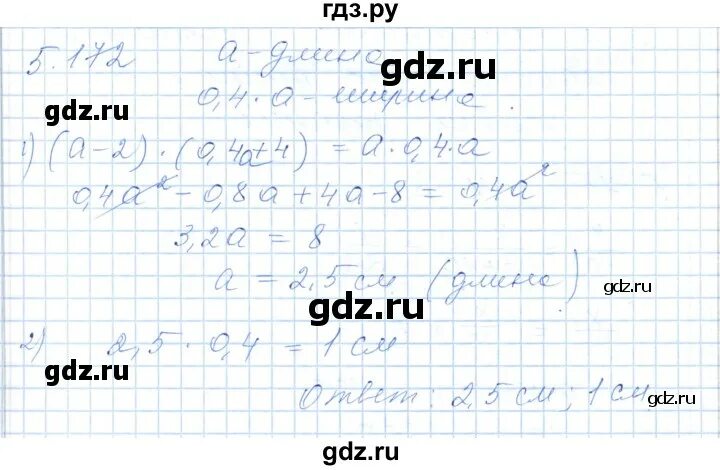 гдз.ру
5.172 а – длина
gdz.ru
0,4·а – ширина.
gdz.ru
1) (а-2)·(0,4а+4) = а·0,4·а
0,4а² - 0,8а + 4а - 8 = 0,4а²
gdz.ru
3,2а = 8
а = 2,5 см (длина)
gdz.ru
gdz.ru
2) 2,5·0,4 = 1 см
gdz.ru
Ответ: 2,5 см; 1 см
gdz.ru
gdz.ru